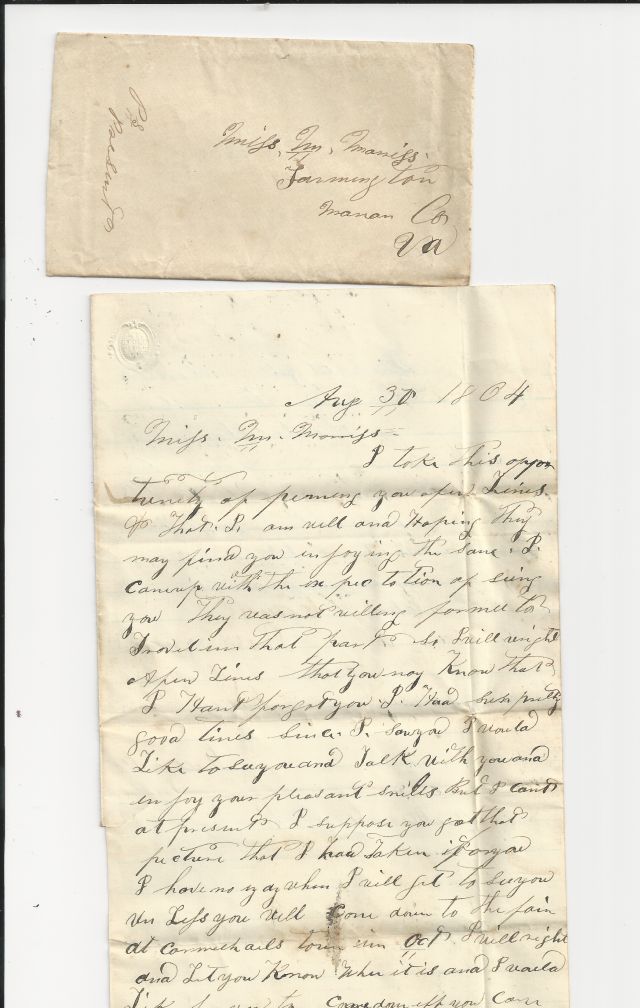 Miss. M. Morriss.
Farmington
Marian Co
Va
Pr
Aug 30 1864
Miss. M. Morriss
I take this oppor
tunity of penning you a few Lines
That. I. am well and Hoping They
may find you in joying the same. I.
came up with the ex pec tation of seing
you They was not willing for mee to
Travel in That part So I will wright
A few Lines that you may Know that
I Hant forgot you I. Had such pretty
good times since. I. saw you I would
Like to see you and Talk with you and
en joy your pleasant smiles But I cant
at present I suppose you got that
picture that I had Taken if or you
I have no ydy when I will get to see you
un Less you will Come down to the fair
at carmichaels town in Oct I will right
and Let you Know When it is and I would
Like for you to Come down iff you Can